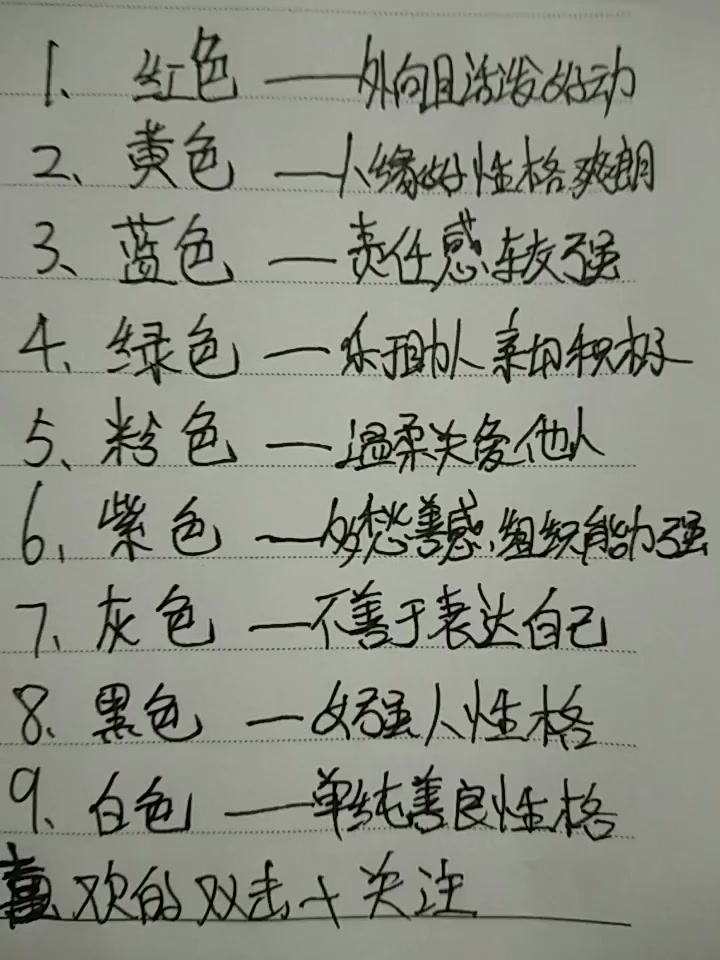 1、红色——外向且活泼好动
2、黄色—人缘好性格爽朗
3、蓝色—责任感较强
4、绿色—乐于助人亲切积极
5、粉色—温柔关爱他人
6、紫色—多愁善感,组织能力强
7、灰色—不善于表达自己
8、黑色—女强人性格
9、白色——单纯善良性格
喜欢的双击+关注